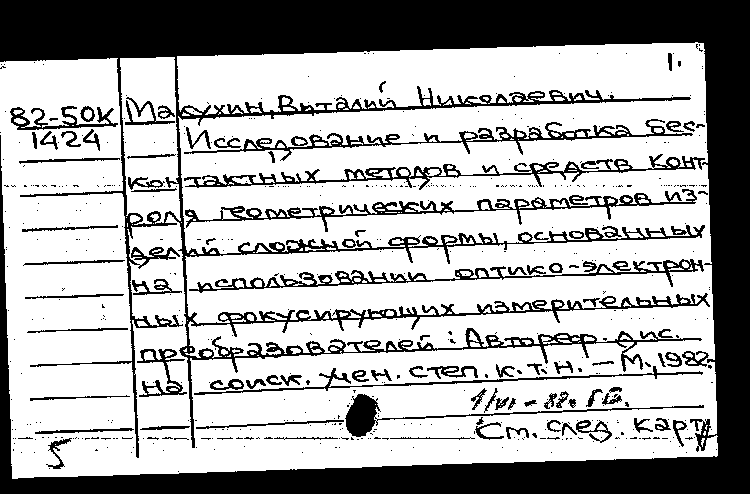 1.
82-50К Макухин, Виталий Николаевич.
1424 Исследование и разработка бес-
контактных методов и средств конт-
роля геометрических параметров из-
делий сложной формы, основанных
на использовании оптико-электрон-
ных фокусирующих измерительных
преобразователей: Автореф. дис.
на соиск. учен. степ. к.т.н. — М., 1982.
1/VI - 82.
См. след. карт
5